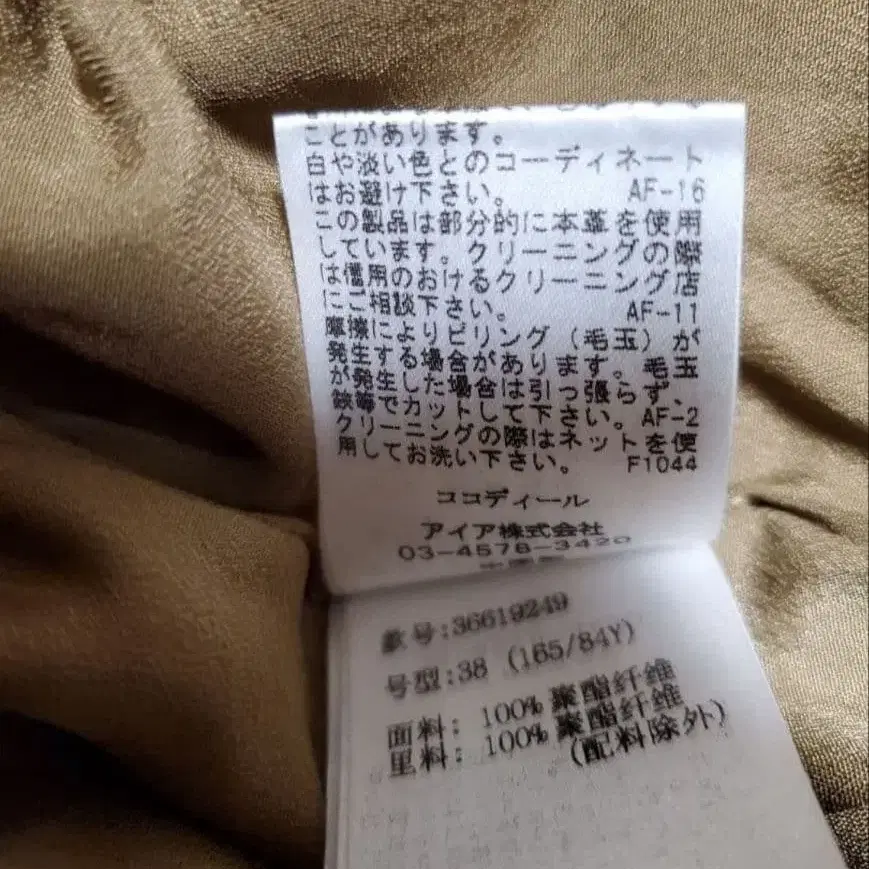 ことがあります。
白や淡い色とのコーディネート
はお避け下さい。 AF-16
この製品は部分的に本革を使用
しています。クリーニングの際
は信用のおけるクリーニング店
にご相談下さい。 AF-11
摩擦によりピリング（毛玉）が
発生する場合があります。毛玉
が発生した場合は引っ張らず、
鋏等でカットして下さい。AF-2
クリーニングの際はネットを使
用してお洗い下さい。 F1044
ココディール
アイア株式会社
03-4578-3420
款号:36619249
号型:38 (165/84Y)
面料: 100% 聚酯纤维
里料: 100% 聚酯纤维
(配料除外)